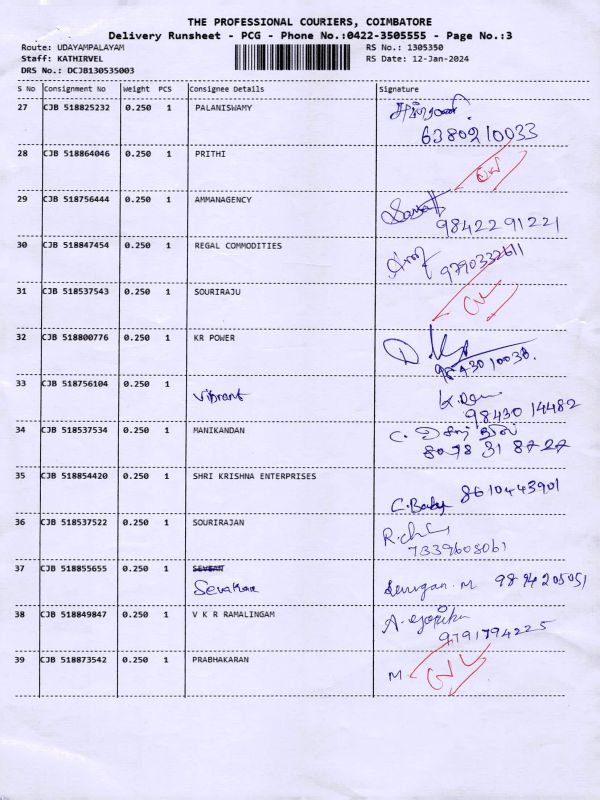 THE PROFESSIONAL COURIERS, COIMBATORE
Delivery Runsheet - PCG - Phone No.:0422-3505555 - Page No.:3
Route: UDAYAMPALAYAM RS No.: 1305350
Staff: KATHIRVEL RS Date: 12-Jan-2024
DRS No.: DCJB130535003
S No Consignment No Weight PCS Consignee Details Signature
27 CJB 518825232 0.250 1 PALANISWAMY
6380210033
28 CJB 518864046 0.250 1 PRITHI
29 CJB 518756444 0.250 1 AMMANAGENCY
9842291221
30 CJB 518847454 0.250 1 REGAL COMMODITIES
9790332611
31 CJB 518537543 0.250 1 SOURIRAJU
32 CJB 518800776 0.250 1 KR POWER
33 CJB 518756104 0.250 1
Vibrant
98430 14482
34 CJB 518537534 0.250 1 MANIKANDAN C.
8078 31 8727
35 CJB 518854420 0.250 1 SHRI KRISHNA ENTERPRISES
C. Baby 8610443901
36 CJB 518537522 0.250 1 SOURIRAJAN
7339603061
37 CJB 518855655 0.250 1
38 CJB 518849847 0.250 1 V K R RAMALINGAM
9791794225
39 CJB 518873542 0.250 1 PRABHAKARAN
M